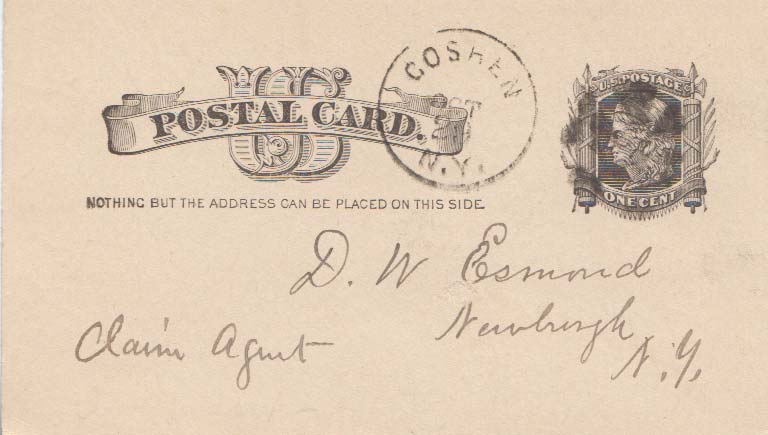 U.S. POSTAGE
US
POSTAL CARD.
GOSHEN
OCT
N.Y.
ONE CENT
NOTHING BUT THE ADDRESS CAN BE PLACED ON THIS SIDE.
D. W Esmond
Newburgh
N.Y.
Claim Agent